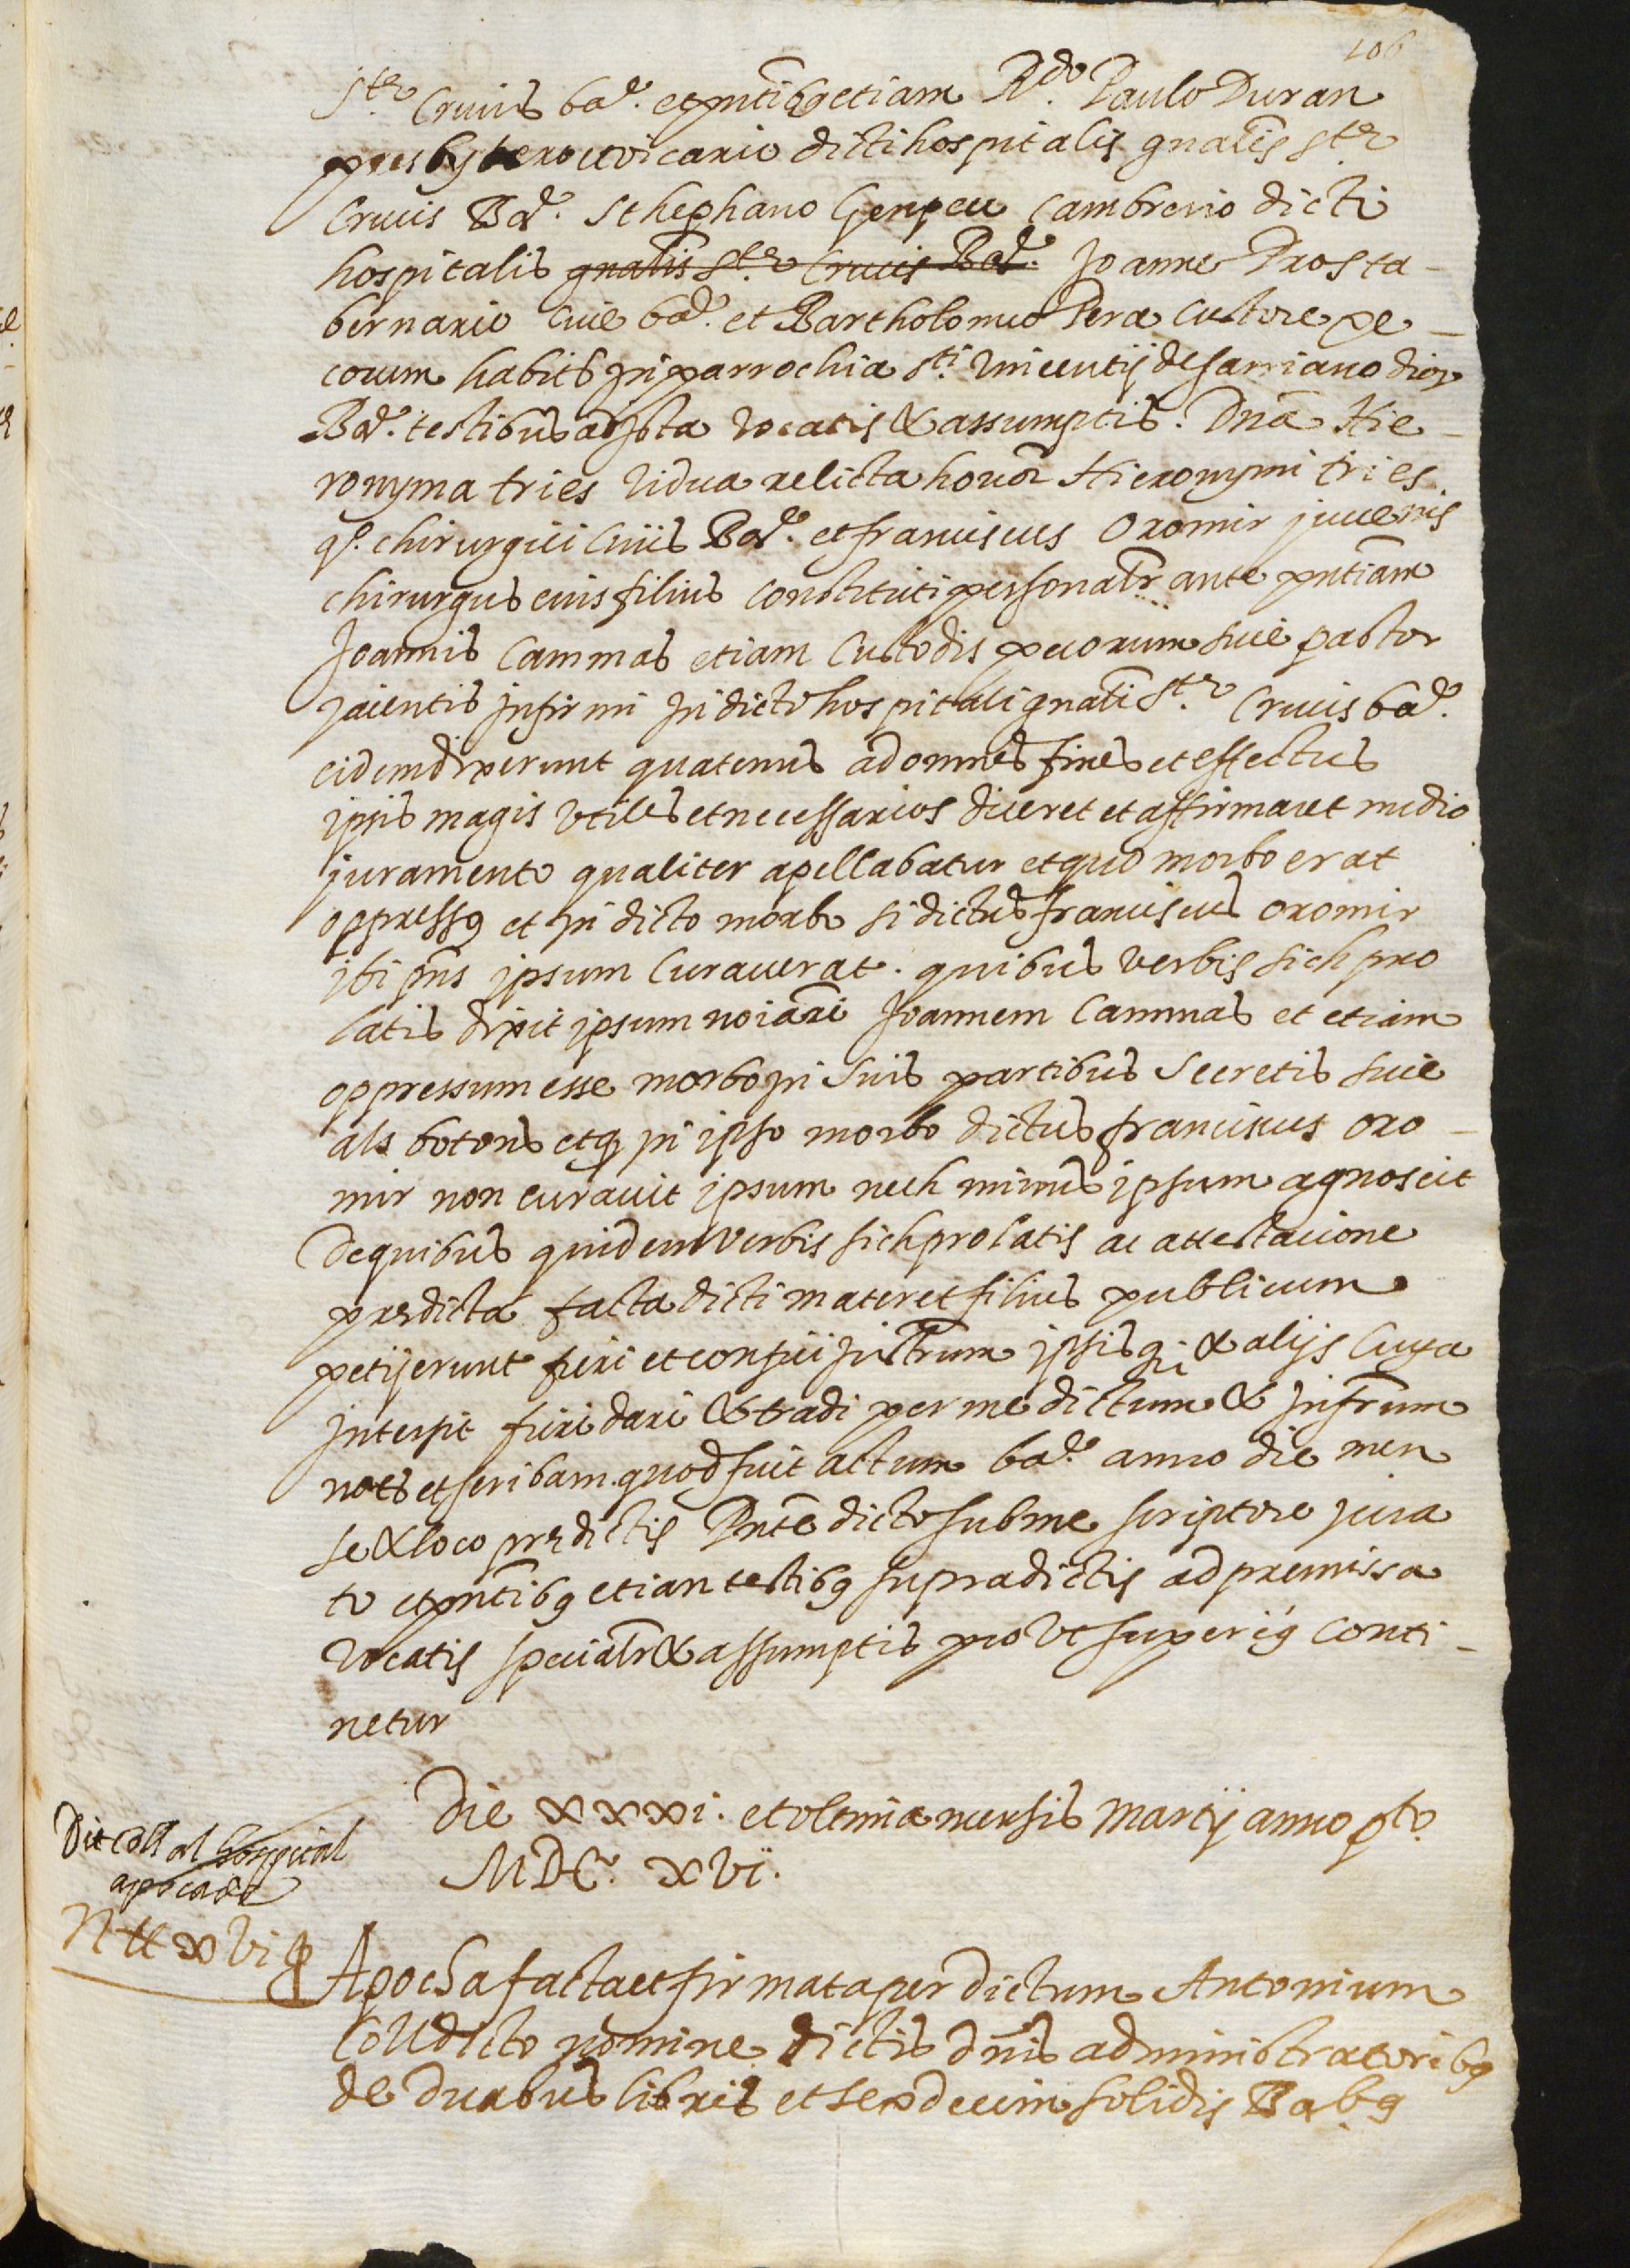 106
S.te Crucis bar.e et pntibg etiam R.do Paulo Duran
presbytero vicario dicti hospitalis gnalis Ste
Crucis Bar.e Sthephano Genpeu Cambrerio dicti
hospitalis gnalis Ste Crucis Bar.e Joanne Pros ta-
bernario Cive bar.e et Bartholomeo Pera Custore pe-
corum habits in parrochia sti. Vincentij de Sarriano dioc
Bar.e testibus ad ista vocatis & assumptis. Dna Hie-
ronyma tries vidua relicta honor Hieronymi tries
q.o chirurgici Civis Bar.e et franciscus Oromir juvenis
chirurgus eius filius Constituti personalr ante pntiam
Joannis Cammas etiam Custodis pecorum sive pastor
jacentis infirmi in dicto hospitali gnali St.e Crucis bar.e
eidem dixerunt quatenus ad omnes fines et effectus
ipsis magis utiles et necessarios diceret et affirmaret medio
juramento qualiter apellabatur et quo morbo erat
oppressg et in dicto morbo si dictus franciscus oromir
ibi pns ipsum Curaverat. quibus verbis sich pro
latis dixit ipsum noiari Joannem Cammas et etiam
oppressum esse morbo in suis partibus Secretis sive
als botons et q in ipso morbo dictus franciscus oro-
mir non curavit ipsum nech minus ipsum agnoscit
De quibus quidem verbis sich prolatis ac attestacione
predicta facta dicti mater et filius publicum
petijerunt fieri et confici instrum ipsisq & alijs Cuya
intersit fieri dari & tradi per me dictum & infrum
nots et scribam. quod fuit actum bar.e anno die men
se & loco predictis Pnte dicto subme scriptore jura
to et pntibg etian testibg supradictis ad premissa
vocatis specialr & assumptis prout superig Conti-
netur
Die xxxi. et ultimia mensis Martij anno pto.
MDC. xvi.
Dit Coll al hospital
apocado
N tt xvi ꝑ
Apocha facta et firmata per dictum Antonium
Coll dicto nomine dictis dnis administratoribg
de duabus libris et sexdecim solidis Babg